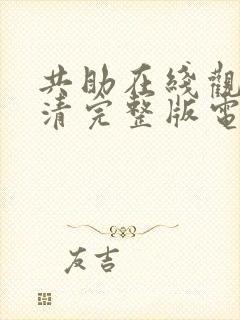 共助在綫觀
清完整版電
友吉